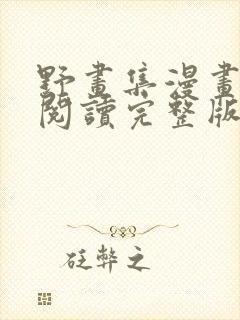 野畫集漫畫
閱讀完整版
砡弊之